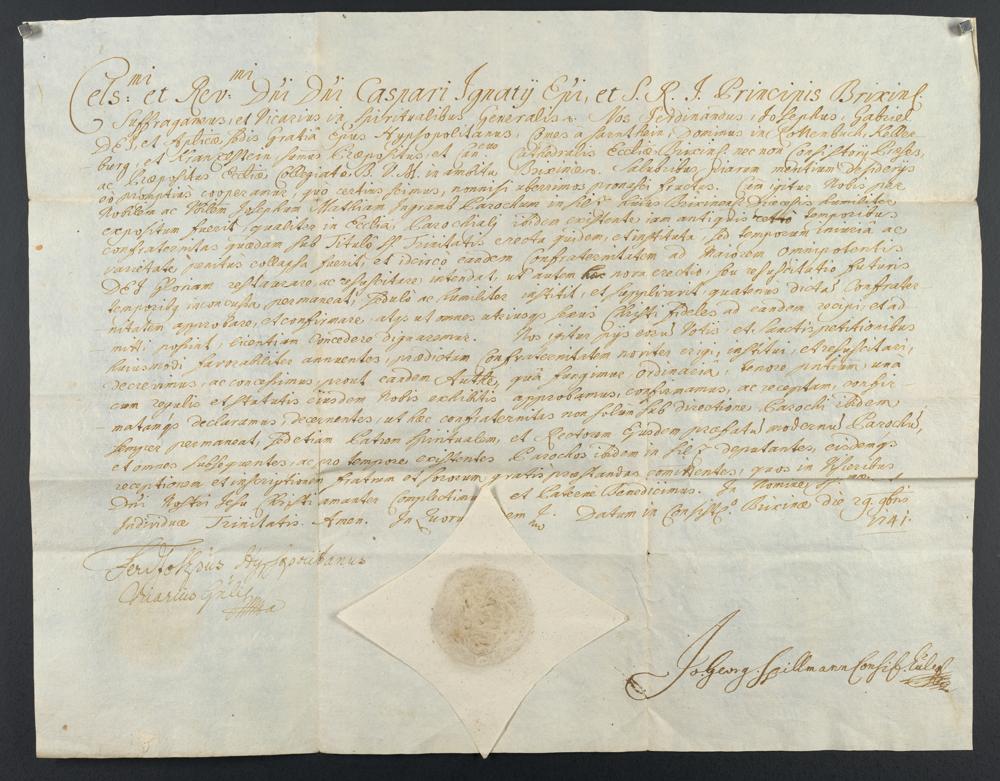 Cels:mi et Rev:mi Dni Dni Caspari Ignatij Epi, et S. R. I. Principis Brixins:
Suffraganeus, et Vicarius in spiritualibus Generalis. Nos Ferdinandus, Josephus, Gabriel
DEI, et Aplicæ Sedis Gratiâ Epus Hypsopolitanus, Comes à Sarnthein, Dominus in Rottenbuch, Keller-
burg, et Kranzestein, Præpositus, et Cathedralis Ecclæ Brixins: nec non Consistorij Præses,
ac Præpositus Ecclæ Collegiatæ B. V. M. in ambitu Brixinæ. Salubribus piarum mentium desiderijs
eo promptius cooperamur, quo certius scimus, nonnisi uberrimos fructus. Cùm igitur Nobis per
Nobilem ac Josephum Mathiam Ingram Parochum in Brixinens: Diæcesis humiliter
expositum fuerit, qualiter in Ecclia Parochiali ibidem existente iam antiquis retrò temporibus
confraternitas quædam sub Titulo SS. Trinitatis erecta quidem, et instituta, sed temporum iniuria ac
varietate penitus collapsa fuerit, et idcirco eandem Confraternitatem ad Maiorem omnipotentis
DEI Gloriam restaurare, ac resuscitare intendat, ut autem nova erectio, seu resuscitatio futuris
temporibus inconcussa permaneat, sedulò ac humiliter institit, et supplicavit quatenus dictam Confrater-
nitatem approbare, et confirmare, atque ut omnes utriusque sexus Christi fideles ad eandem recipi, et ad-
mitti possint, licentiam concedere dignaremur. Nos igitur pijs eius Votis, et sanctis petitionibus
huiusmodi favorabiliter annuentes, prædictam Confraternitatem noviter erigi, institui, et resuscitari,
decrevimus, ac concessimus, prout eandem Autthe, quâ fungimur ordinariâ, tenore pntium, unà
cum regulis et statutis eiusdem Nobis exhibitis approbamus, confirmamus, ac receptam, confir-
matamque declaramus, decernentes, ut hæc confraternitas non solùm sub directione Parochi ibidem
semper permaneat, sed etiam Patrem spiritualem, et Rectorem Ejusdem præfatũ modernũ Parochũ,
et omnes subsequentes, ac pro tempore existentes Parochos ibidem in deputantes, eisdemque
receptionem et inscriptionem fratrum et sororum gratis præstandas comittentes, quos in Visceribus
Dni Nostri Jesu Xristi amanter complectimur et Paterne Benedicimus. In Nomine
Individuæ Trinitatis. Amen. In quorum Datum in Consist:o Brixinæ die 29. 9bris
1741.
Hypsopolitanus
Vicarius Gnlis
Jo: Georg. Spillmann Consist: